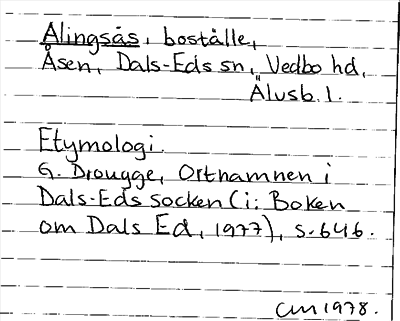 Alingsås, boställe,
Åsen, Dals-Eds sn, Vedbo hd,
Älvsb. l.
Etymologi.
G. Drougge, Ortnamnen i
Dals-Eds socken (i: Boken
om Dals Ed, 1977), s. 646.
CM 1978.